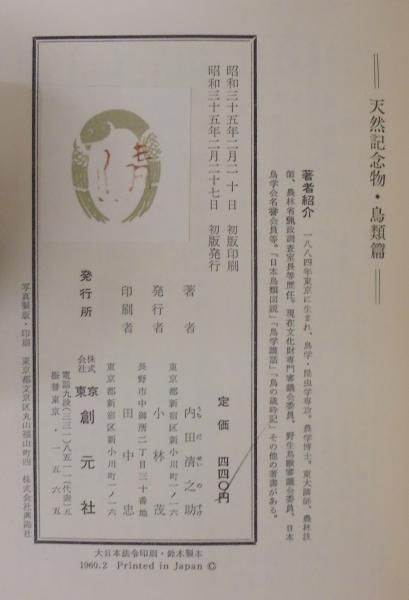 天然記念物・鳥類篇
著者紹介
一八八四年東京に生まれ、鳥学・昆虫学専攻。農学博士。東大講師、農林技
師、農林省猟政調査室長等歴任。現在文化財専門審議会委員、野生鳥獣審議会委員、日本
鳥学会名誉会員等。『日本鳥類図説』『鳥学講話』『鳥の歳時記』その他の著書がある。
昭和三十五年二月二十日 初版印刷
昭和三十五年二月二十七日 初版発行
定価 四四〇円
著者 内田清之助
うちだせいのすけ
東京都新宿区新小川町一ノ一六
発行者 小林茂
長野市中御所二丁目三十番地
印刷者 田中忠
東京都新宿区新小川町一ノ一六
発行所 株式会社 東京創元社
電話九段(三三一)八五一一(代表)五
振替東京・一五六五
写真製版・印刷 東京都文京区丸山福山町四 株式会社興陽社
大日本法令印刷・鈴木製本
1960.2 Printed in Japan ©